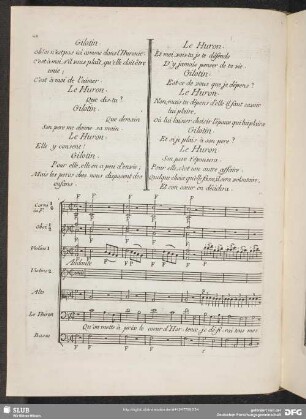 Gilotin
Oh! ce n'est pas ici comme dans l'Huronie.
C'est à moi, s'il vous plaît, qu'elle doit être
unie;
C'est à moi de l'aimer.
Le Huron.
Que dis-tu?
Gilotin.
Que demain
Son pere me donne sa main.
Le Huron.
Elle y consent?
Gilotin.
Pour elle, elle en a peu d'envie;
Mais les parens chez nous disposent des
enfans.
Le Huron.
Et moi, sans-tu, je te défends
D'y jamais penser de ta vie.
Gilotin.
Est-ce de vous que je dépens?
Le Huron.
Non, mais tu dépens d'elle il faut savoir
lui plaire,
Ou lui laisser choisir l'époux qui lui plaira
Gilotin.
Et si je plais à son pere?
Le Huron.
Son pere t'épousera.
Pour elle, c'est une autre affaire:
Et son cœur en décidera.
Corni
in F
Oboi
Violino 1
Violino 2
Alto
Le Huron
Basso
Andante
Qu'on mette à prix le cœur d'Hortense, je
SLUB
DFG